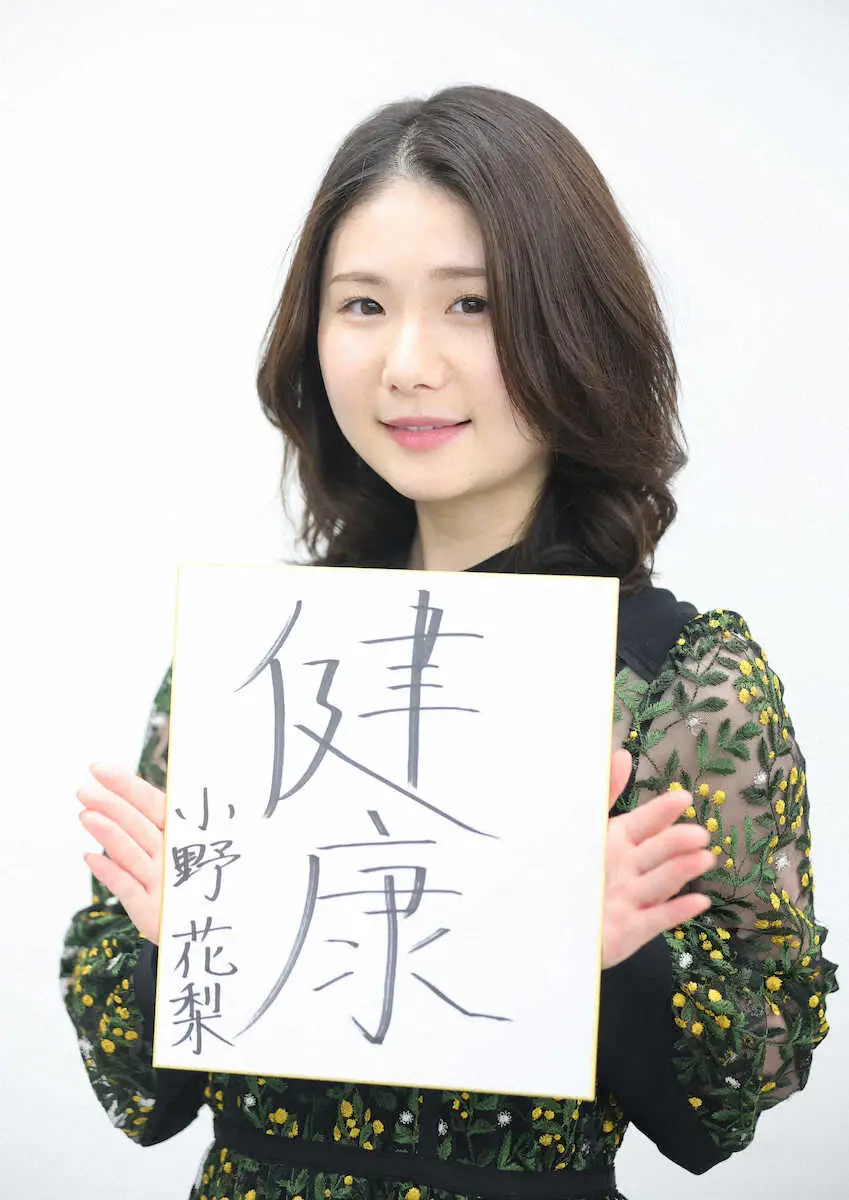 健康
小野花梨